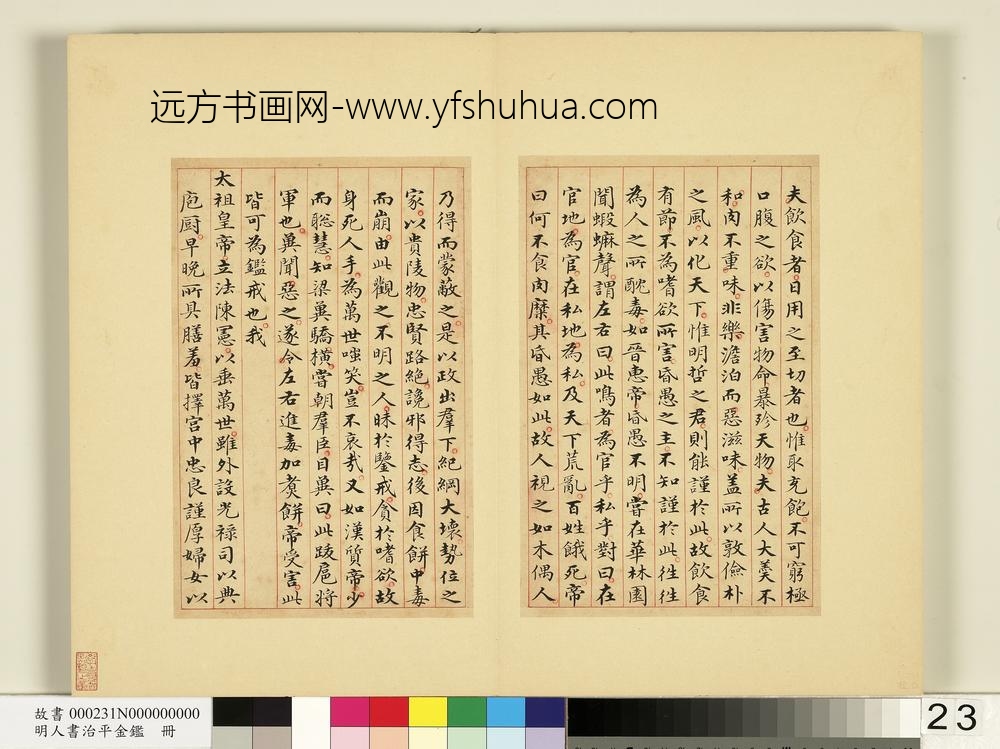 远方书画网-www.yfshuhua.com
夫飲食者日用之至切者也惟取充飽不可窮極
口腹之欲以傷害物命暴殄天物夫古人大羹不
和肉不重味非樂澹泊而惡滋味蓋所以敦儉朴
之風以化天下惟明哲之君則能謹於此故飲食
有節不為嗜欲所害昏愚之主不知謹於此徃徃
為人之所酖毒如晉惠帝昏愚不明嘗在華林園
聞蝦蟆聲謂左右曰此鳴者為官乎私乎對曰在
官地為官在私地為私及天下荒亂百姓餓死帝
曰何不食肉糜其昏愚如此故人視之如木偶人
乃得而蒙蔽之是以政出羣下紀綱大壞勢位之
家以貴陵物忠賢路絶讒邪得志後因食餅中毒
而崩由此觀之不明之人昧於鑒戒貪於嗜欲故
身死人手為萬世嗤笑豈不哀哉又如漢質帝少
而聡慧知梁冀驕橫嘗朝羣臣目冀曰此跋扈將
軍也冀聞惡之遂令左右進毒加煑餅帝受害此
皆可為鑑戒也我
太祖皇帝立法陳憲以垂萬世雖外設光祿司以典
庖厨早晚所具膳羞皆擇宫中忠良謹厚婦女以
故書 000231N000000000
明人書治平金鑑 冊
23